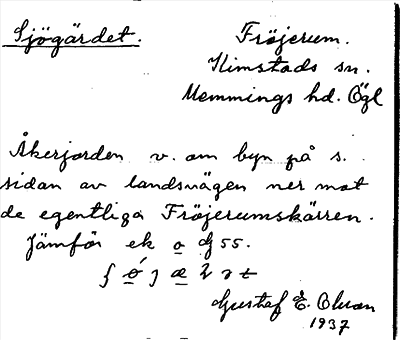 Sjögärdet. Fröjerum.
Kimstads sn.
Memmings hd. Ögl
Åkerjorden v. om byn på s.
sidan av landsvägen ner mot
de egentliga Fröjerumskärren.
Jämför ek o dj 55.
Gustaf E. Olson
1937